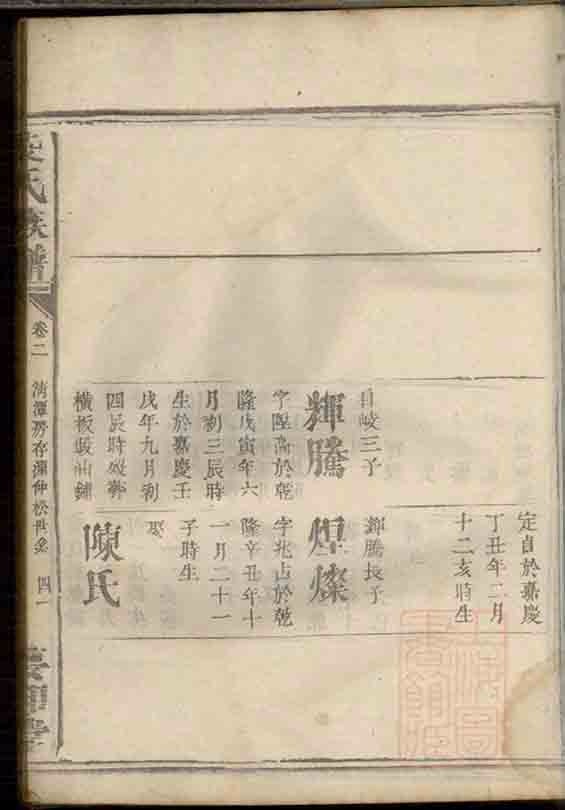 自岐三子
輝騰
字陞高於乾
隆戊寅年六
月初三辰時
生於嘉慶壬
戌年九月初
四辰時歿葬
橫板墩油鋪
定自於嘉慶
丁丑年二月
十二亥時生
輝騰長子
煌燦
字兆占於乾
隆辛丑年十
一月二十一
子時生
娶
陳氏
氏族譜
卷二
清潭房存澤仲松世系
四一